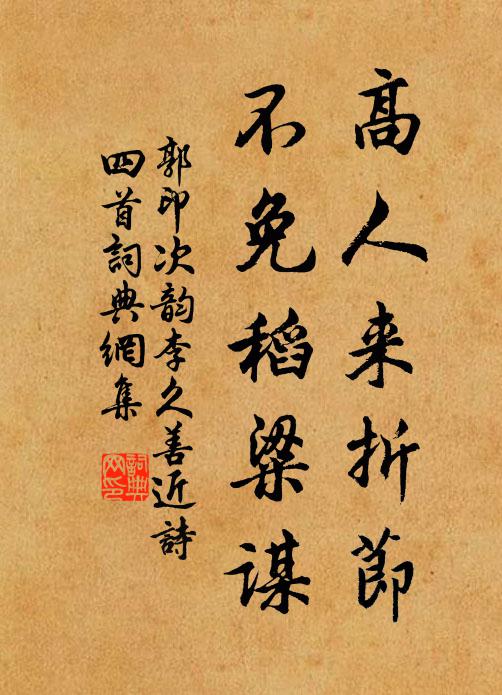 高人来折節
不免稻粱謀
郭印次韵李久善近詩
四首詞典網集
詞典
网印